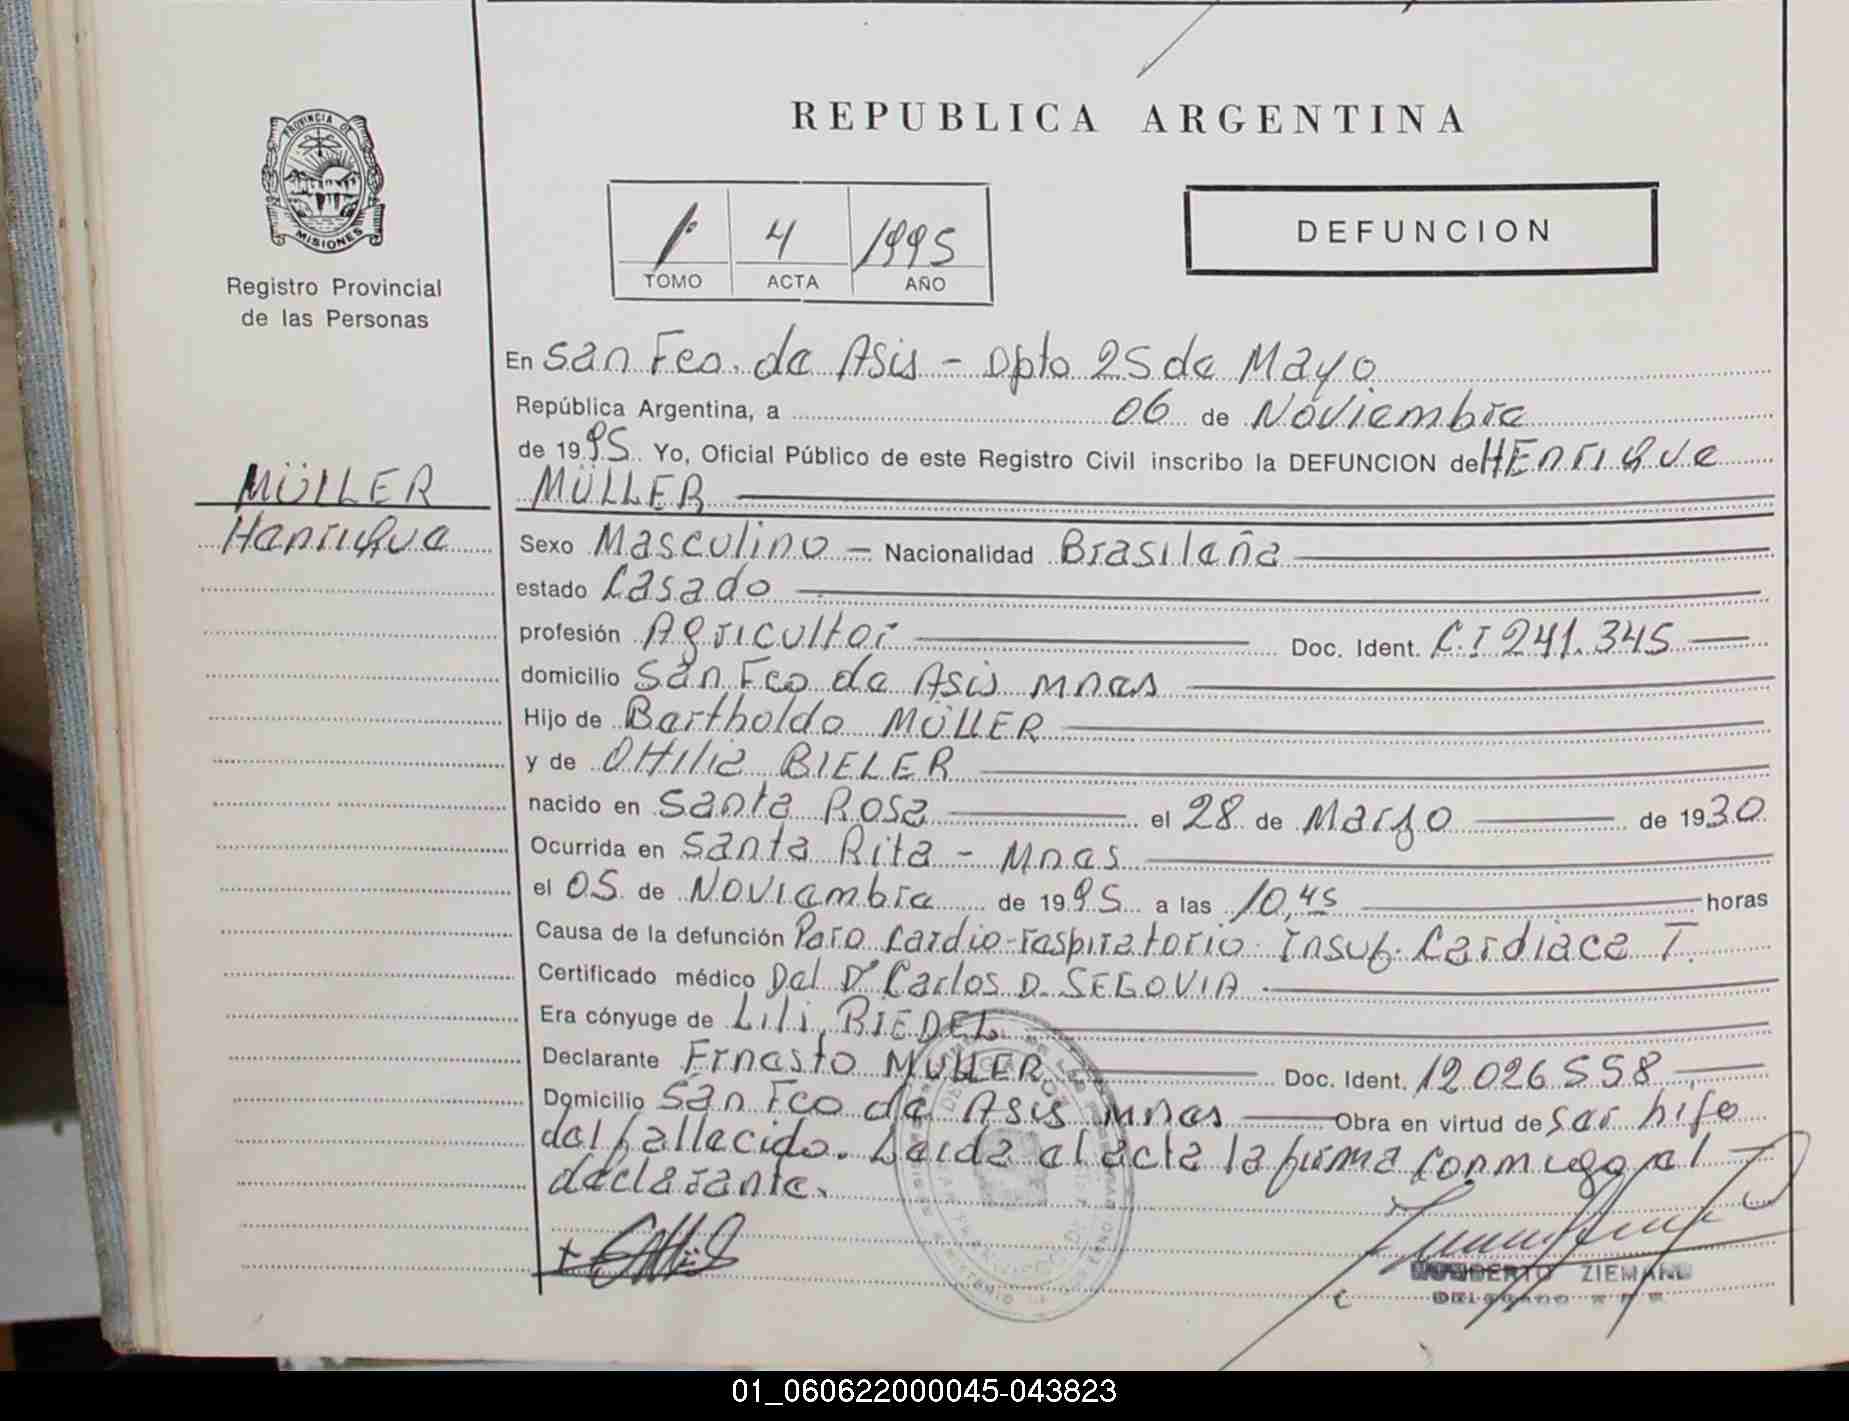 REPUBLICA ARGENTINA
PROVINCIA DE
MISIONES
Registro Provincial
de las Personas
4 1995
TOMO ACTA AÑO
DEFUNCION
En San Fco. de Asis - Dpto 25 de Mayo
República Argentina, a 06 de Noviembre
de 1995. Yo, Oficial Público de este Registro Civil inscribo la DEFUNCION de HEnrique
MÜLLER
MÜLLER
Henrique
Sexo Masculino — Nacionalidad Brasileña
estado Casado
profesión Agricultor Doc. Ident. C.I 241.345
domicilio San Fco de Asis Mnes
Hijo de Bartholdo MÜLLER
y de Ottilia BIELER
nacido en Santa Rosa el 28 de Marzo de 1930
Ocurrida en Santa Rita - Mnes
el 05 de Noviembre de 1995 a las 10,45 horas
Causa de la defunción Paro Cardio-respiratorio Insuf. Cardiaca T.
Certificado médico Del Dr Carlos D. SEGOVIA
Era cónyuge de Lili RIEDEL
Declarante Ernesto MULLER Doc. Ident. 12026558
Domicilio San Fco de Asis Mnes Obra en virtud de ser hijo
del fallecido. Leida el acta la firma conmigo el
declarante.
HUMBERTO ZIEMANN
DELEGADO
01_060622000045-043823